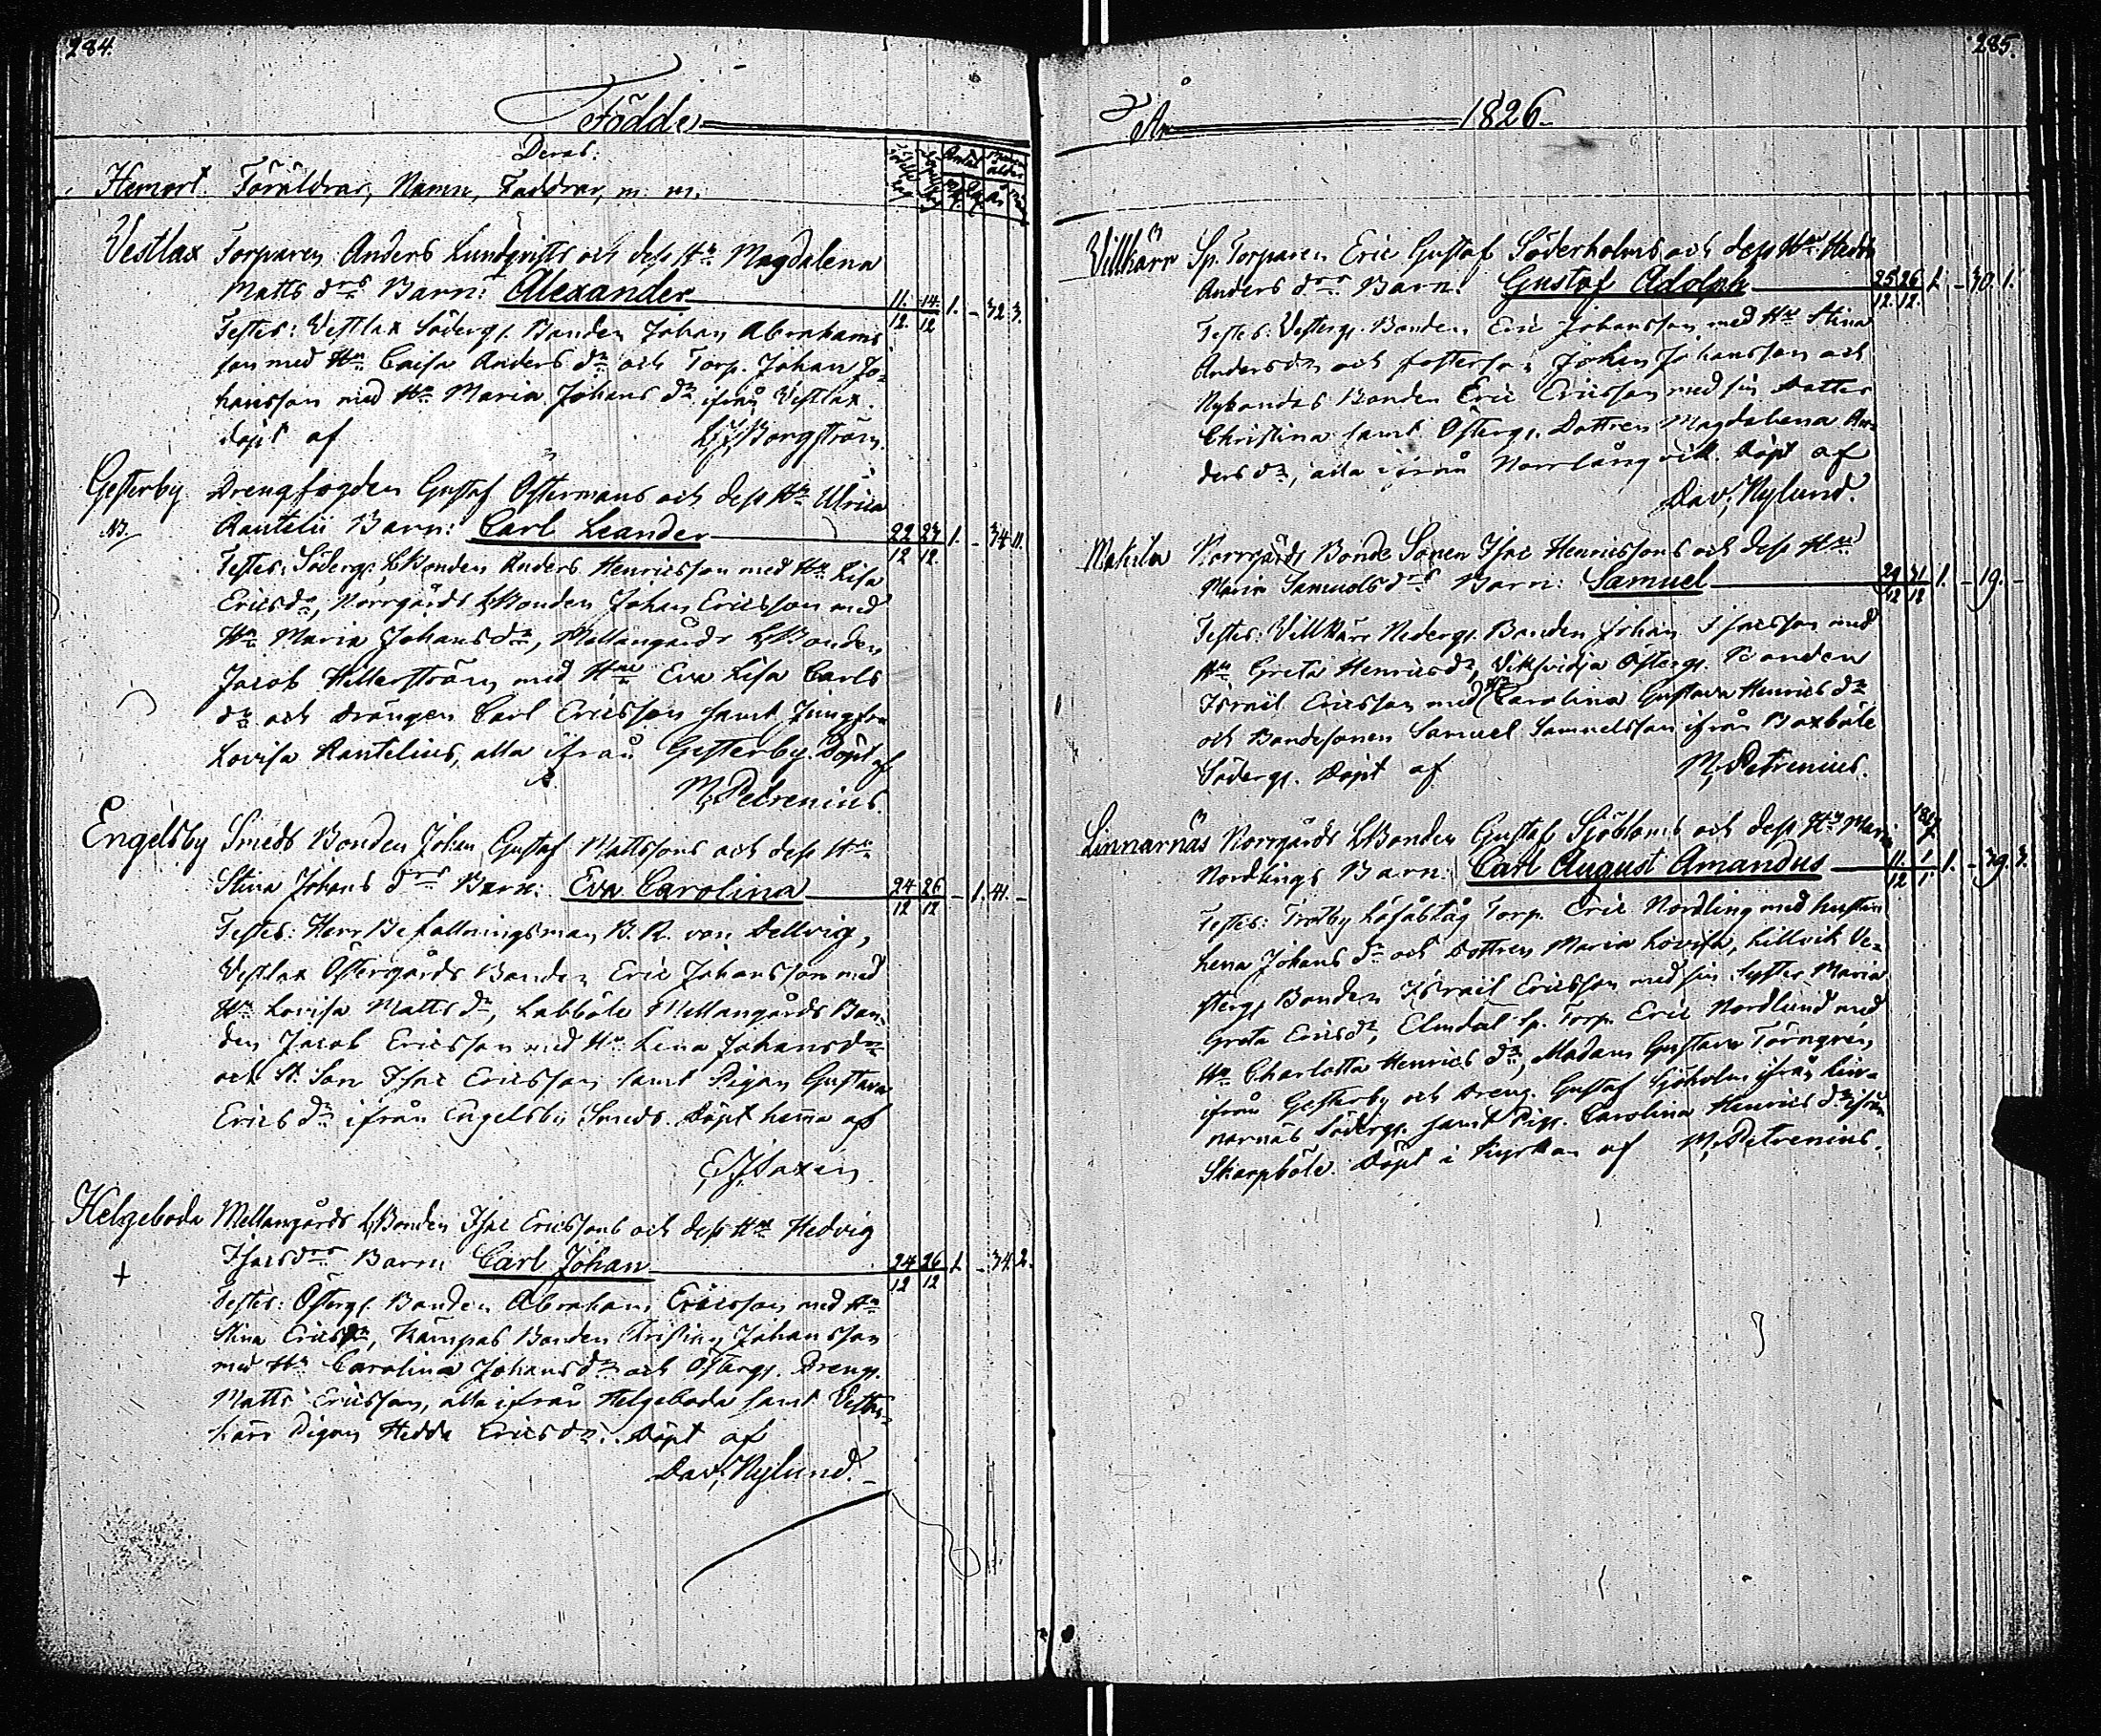 284.
Födde
Deras.
Hemort. Föräldrar, Namn, Faddrar, m. m.
Vestlax Torparen Anders Lundqvists och dess Hu Magdalena
Matts drs Barn: Alexander 11. 14. 1. - 32. 3.
12. 12
Testes: Vestlax Söderg. Bonden Johan Abrahams
son med Hu Caisa Anders dr och Torp. Johan Jo-
hansson med Hu Maria Johans dr ifrån Vestlax.
döpt af Borgström.
Gesterby Drengfogden Gustaf Östermans och dess Hu Ulrica
NB. Rautelii Barn: Carl Leander 22 27 1. - 34 11.
12 12.
Testes: Söderg. LBonden Anders Henricsson med Hu Lisa
Ericsdr, Norrgårds LBonden Johan Ericsson med
Hu Maria Johansdr, Mellangårds LBonden
Jacob Hillerström med Hu Eva Lisa Carls
dr och Drängen Carl Ericsson samt Jungfru
Lovisa Rautelius, alla ifrån Gesterby. Döpt af
M. Petrenius.
Engelsby Smeds Bonden Johan Gustaf Mattssons och dess Hu
Stina Johans drs Barn: Eva Carolina 24 26 - 1. 41. -
12 12
Testes: Herr Befallningsman B. R. von Dellvig,
Vestlax Östergårds Bonden Eric Johansson med
Hu Lovisa Matts dr, Labböle Mellangårds Bon-
den Jacob Ericsson med Hu Lena Johansdr
och St. Son Isac Ericsson samt Pigan Gustava
Erics dr ifrån Engelsby Smeds. Döpt hema af
Saxén
Helgeboda Mellangårds LBonden Isac Ericssons och dess Hu Hedvig
Isacsdrs Barn: Carl Johan 24 26 1. - 34. 2.
12 12
Testes: Österg. Bonden Abraham Ericsson med Hu
Stina Ericsdr, Kämpas Bonden Christian Johansson
med Hu Carolina Johansdr och Österg. Dreng.
Matts Ericsson, alla ifrån Helgeboda samt
Pigan Hedda Ericsdr. Döpt af
Dav. Nylund.
285.
År 1826
Villkärr Sp. Torparen Eric Gustaf Söderholms och dess Hu Hedda
Anders drs Barn: Gustaf Adolph 25 26 1. - 30. 1.
12. 12.
Testes: Vesterg. Bonden Eric Johansson med Hu Stina
Andersdr och fosterson Johan Johansson och
Nybondas Bonden Eric Ericsson med sin Dotter
Christina samt Österg. Dottren Magdalena An-
ders dr, alla ifrån Norrlångvik. Döpt af
Dav. Nylund.
Makila Norrgårds Bonde Sonen Isac Henricssons och dess Hu
Maria Samuels drs Barn: Samuel 29 31 1. - 19. -
12 12
Testes: Villkärr Nederg. Bonden Johan Isacsson med
Hu Greta Henricsdr, Österg. Bonden
Israël Ericsson med Hu Carolina Gustava Henrics dr
och Bondesonen Samuel Samuelsson ifrån Boxböle
Söderg. Döpt af M. Petrenius.
1827
Linnarnäs Norrgårds LBonden Gustaf Sjöbloms och dess Hu Maria
Nordlings Barn: Carl August Amandus 11. 1 1. - 39. 3.
12 1.
Testes: Torp. Eric Nordling med hustru
Lena Johans dr och Dottren Maria Lovisa, Lillvik Ve-
sterg. Bonden Israël Ericsson med sin Syster Maria
Greta Ericsdr, Elmdal Sp. Torp. Eric Nordlund med
Hu Charlotta Henrics dr, Madam Gustava Törngren,
ifrån Gesterby och Dreng. Gustaf Sjöholm ifrån Lin-
narnäs Söderg. samt Pig. Carolina Henrics dr ifrån
Skarpböle. Döpt i Kyrkan af M. Petrenius.